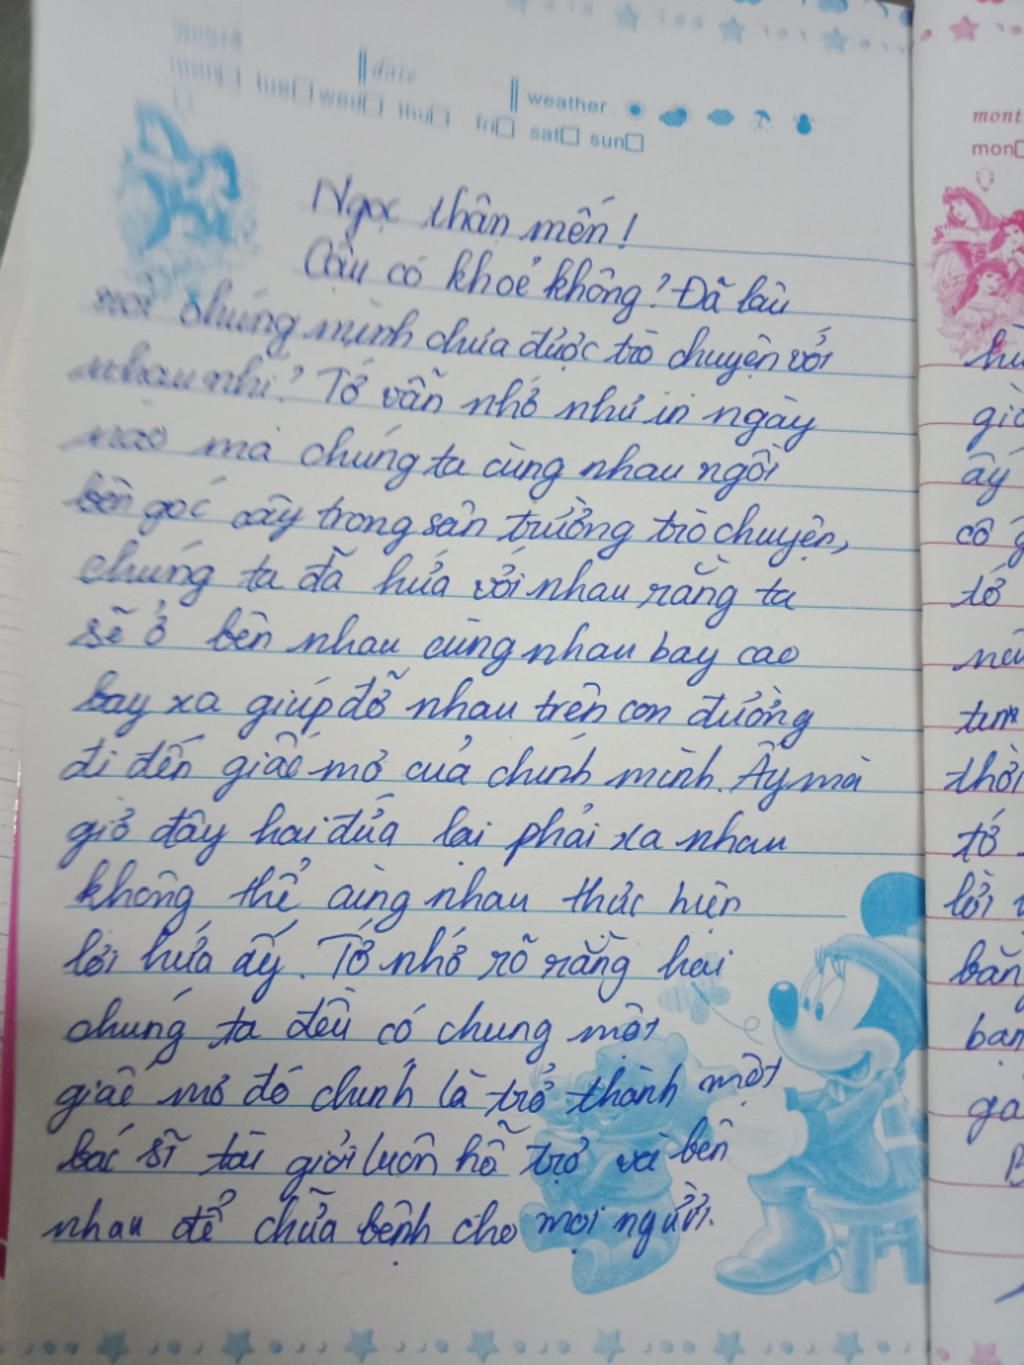 date
weather
tue wed thu fri sat sun
mont
mon
Ngọc thân mến!
Cậu có khoẻ không? Đã lâu
rồi chúng mình chưa được trò chuyện với
nhau nhỉ? Tớ vẫn nhớ như in ngày
nào mà chúng ta cùng nhau ngồi
bên gốc cây trong sân trường trò chuyện,
chúng ta đã hứa với nhau rằng ta
sẽ ở bên nhau cùng nhau bay cao
bay xa giúp đỡ nhau trên con đường
đi đến giấc mơ của chính mình. Ấy mà
giờ đây hai đứa lại phải xa nhau
không thể cùng nhau thực hiện
lời hứa ấy. Tớ nhớ rõ rằng hai
chúng ta đều có chung một
giấc mơ đó chính là trở thành một
bác sĩ tài giỏi luôn hỗ trợ và bên
nhau để chữa bệnh cho mọi người.
ấy
cô
tớ
thời
tớ
lời
bằng
bạn